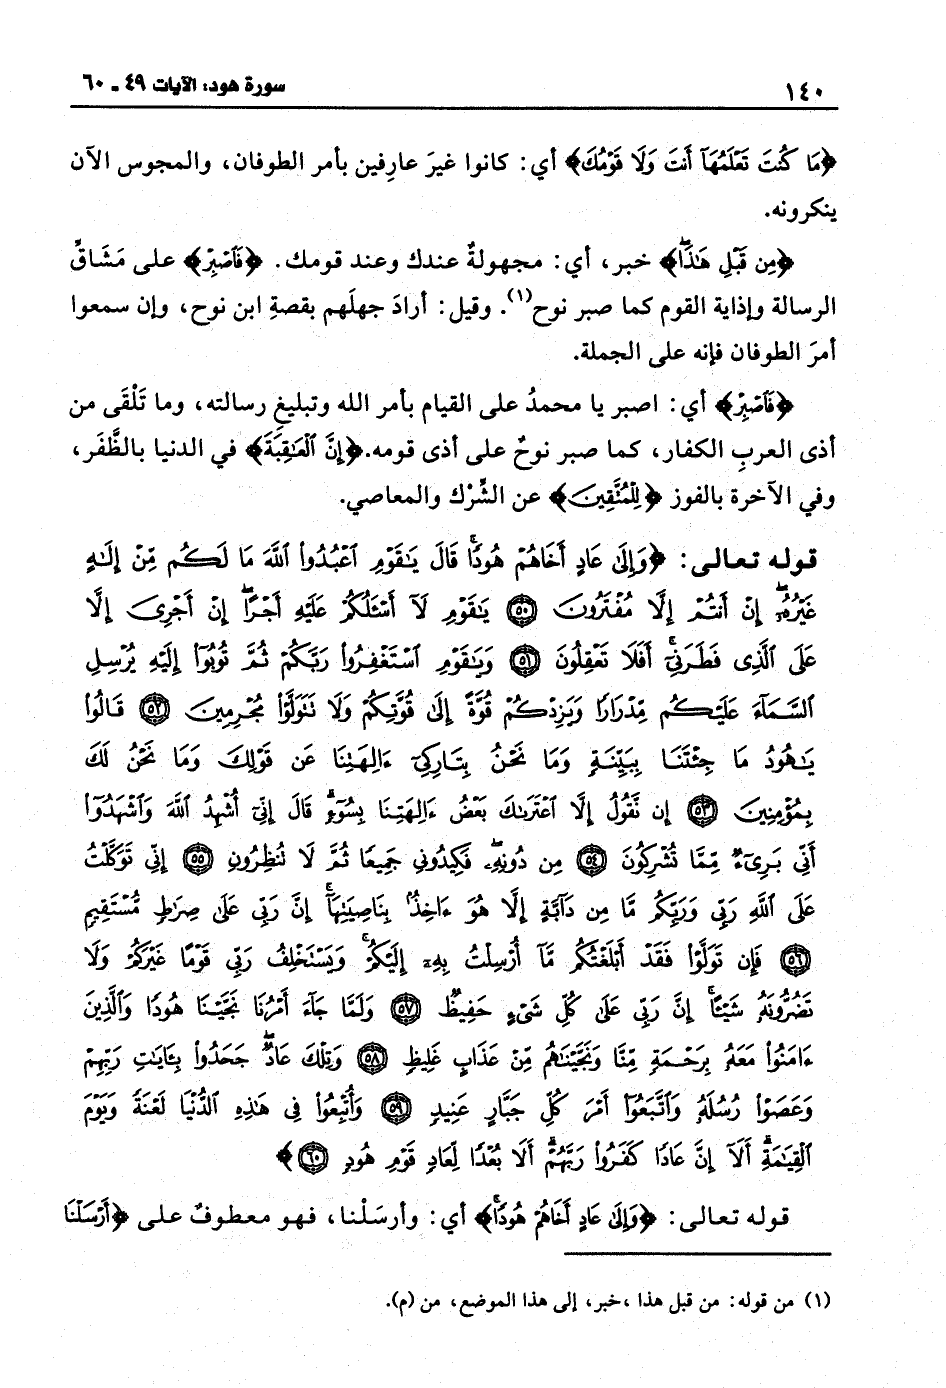 ١٤٠ سورة هود: الآيات ٤٩ ـ ٦٠
﴿مَا كُنتَ تَعْلَمُهَآ أَنتَ وَلَا قَوْمُكَ﴾ أي: كانوا غيرَ عارِفين بأمر الطوفان، والمجوس الآن
ينكرونه.
﴿مِن قَبْلِ هَٰذَاۖ﴾ خبر، أي: مجهولةٌ عندك وعند قومك. ﴿فَٱصْبِرْ﴾ على مَشَاقِّ
الرسالة وإذاية القوم كما صبر نوح(١). وقيل: أرادَ جهلَهم بقصةِ ابن نوح، وإن سمعوا
أمرَ الطوفان فإنه على الجملة.
﴿فَٱصْبِرْ﴾ أي: اصبر يا محمدُ على القيام بأمر الله وتبليغِ رسالته، وما تَلْقَى من
أذى العربِ الكفار، كما صبر نوحٌ على أذى قومه. ﴿إِنَّ ٱلْعَٰقِبَةَ﴾ في الدنيا بالظَّفَر،
وفي الآخرة بالفوز ﴿لِلْمُتَّقِينَ﴾ عن الشِّرْك والمعاصي.
قوله تعالى: ﴿وَإِلَىٰ عَادٍ أَخَاهُمْ هُودًاۚ قَالَ يَٰقَوْمِ ٱعْبُدُوا۟ ٱللَّهَ مَا لَكُم مِّنْ إِلَٰهٍ
غَيْرُهُۥٓۖ إِنْ أَنتُمْ إِلَّا مُفْتَرُونَ ٥٠ يَٰقَوْمِ لَآ أَسْـَٔلُكُمْ عَلَيْهِ أَجْرًاۖ إِنْ أَجْرِىَ إِلَّا
عَلَى ٱلَّذِى فَطَرَنِىٓۚ أَفَلَا تَعْقِلُونَ ٥١ وَيَٰقَوْمِ ٱسْتَغْفِرُوا۟ رَبَّكُمْ ثُمَّ تُوبُوٓا۟ إِلَيْهِ يُرْسِلِ
ٱلسَّمَآءَ عَلَيْكُم مِّدْرَارًا وَيَزِدْكُمْ قُوَّةً إِلَىٰ قُوَّتِكُمْ وَلَا تَتَوَلَّوْا۟ مُجْرِمِينَ ٥٢ قَالُوا۟
يَٰهُودُ مَا جِئْتَنَا بِبَيِّنَةٍ وَمَا نَحْنُ بِتَارِكِىٓ ءَالِهَتِنَا عَن قَوْلِكَ وَمَا نَحْنُ لَكَ
بِمُؤْمِنِينَ ٥٣ إِن نَّقُولُ إِلَّا ٱعْتَرَىٰكَ بَعْضُ ءَالِهَتِنَا بِسُوٓءٍۗ قَالَ إِنِّىٓ أُشْهِدُ ٱللَّهَ وَٱشْهَدُوٓا۟
أَنِّى بَرِىٓءٌ مِّمَّا تُشْرِكُونَ ٥٤ مِن دُونِهِۦۖ فَكِيدُونِى جَمِيعًا ثُمَّ لَا تُنظِرُونِ ٥٥ إِنِّى تَوَكَّلْتُ
عَلَى ٱللَّهِ رَبِّى وَرَبِّكُم مَّا مِن دَآبَّةٍ إِلَّا هُوَ ءَاخِذٌۢ بِنَاصِيَتِهَآۚ إِنَّ رَبِّى عَلَىٰ صِرَٰطٍ مُّسْتَقِيمٍ
٥٦ فَإِن تَوَلَّوْا۟ فَقَدْ أَبْلَغْتُكُم مَّآ أُرْسِلْتُ بِهِۦٓ إِلَيْكُمْۚ وَيَسْتَخْلِفُ رَبِّى قَوْمًا غَيْرَكُمْ وَلَا
تَضُرُّونَهُۥ شَيْـًٔاۚ إِنَّ رَبِّى عَلَىٰ كُلِّ شَىْءٍ حَفِيظٌ ٥٧ وَلَمَّا جَآءَ أَمْرُنَا نَجَّيْنَا هُودًا وَٱلَّذِينَ
ءَامَنُوا۟ مَعَهُۥ بِرَحْمَةٍ مِّنَّا وَنَجَّيْنَٰهُم مِّنْ عَذَابٍ غَلِيظٍ ٥٨ وَتِلْكَ عَادٌۖ جَحَدُوا۟ بِـَٔايَٰتِ رَبِّهِمْ
وَعَصَوْا۟ رُسُلَهُۥ وَٱتَّبَعُوٓا۟ أَمْرَ كُلِّ جَبَّارٍ عَنِيدٍ ٥٩ وَأُتْبِعُوا۟ فِى هَٰذِهِ ٱلدُّنْيَا لَعْنَةً وَيَوْمَ
ٱلْقِيَٰمَةِۗ أَلَآ إِنَّ عَادًا كَفَرُوا۟ رَبَّهُمْۗ أَلَا بُعْدًا لِّعَادٍ قَوْمِ هُودٍ ٦٠﴾
قوله تعالى: ﴿وَإِلَىٰ عَادٍ أَخَاهُمْ هُودًاۚ﴾ أي: وأرسَلْنا، فهو معطوفٌ على ﴿أَرْسَلْنَا
(١) من قوله: من قبل هذا ،خبر، إلى هذا الموضع، من (م).